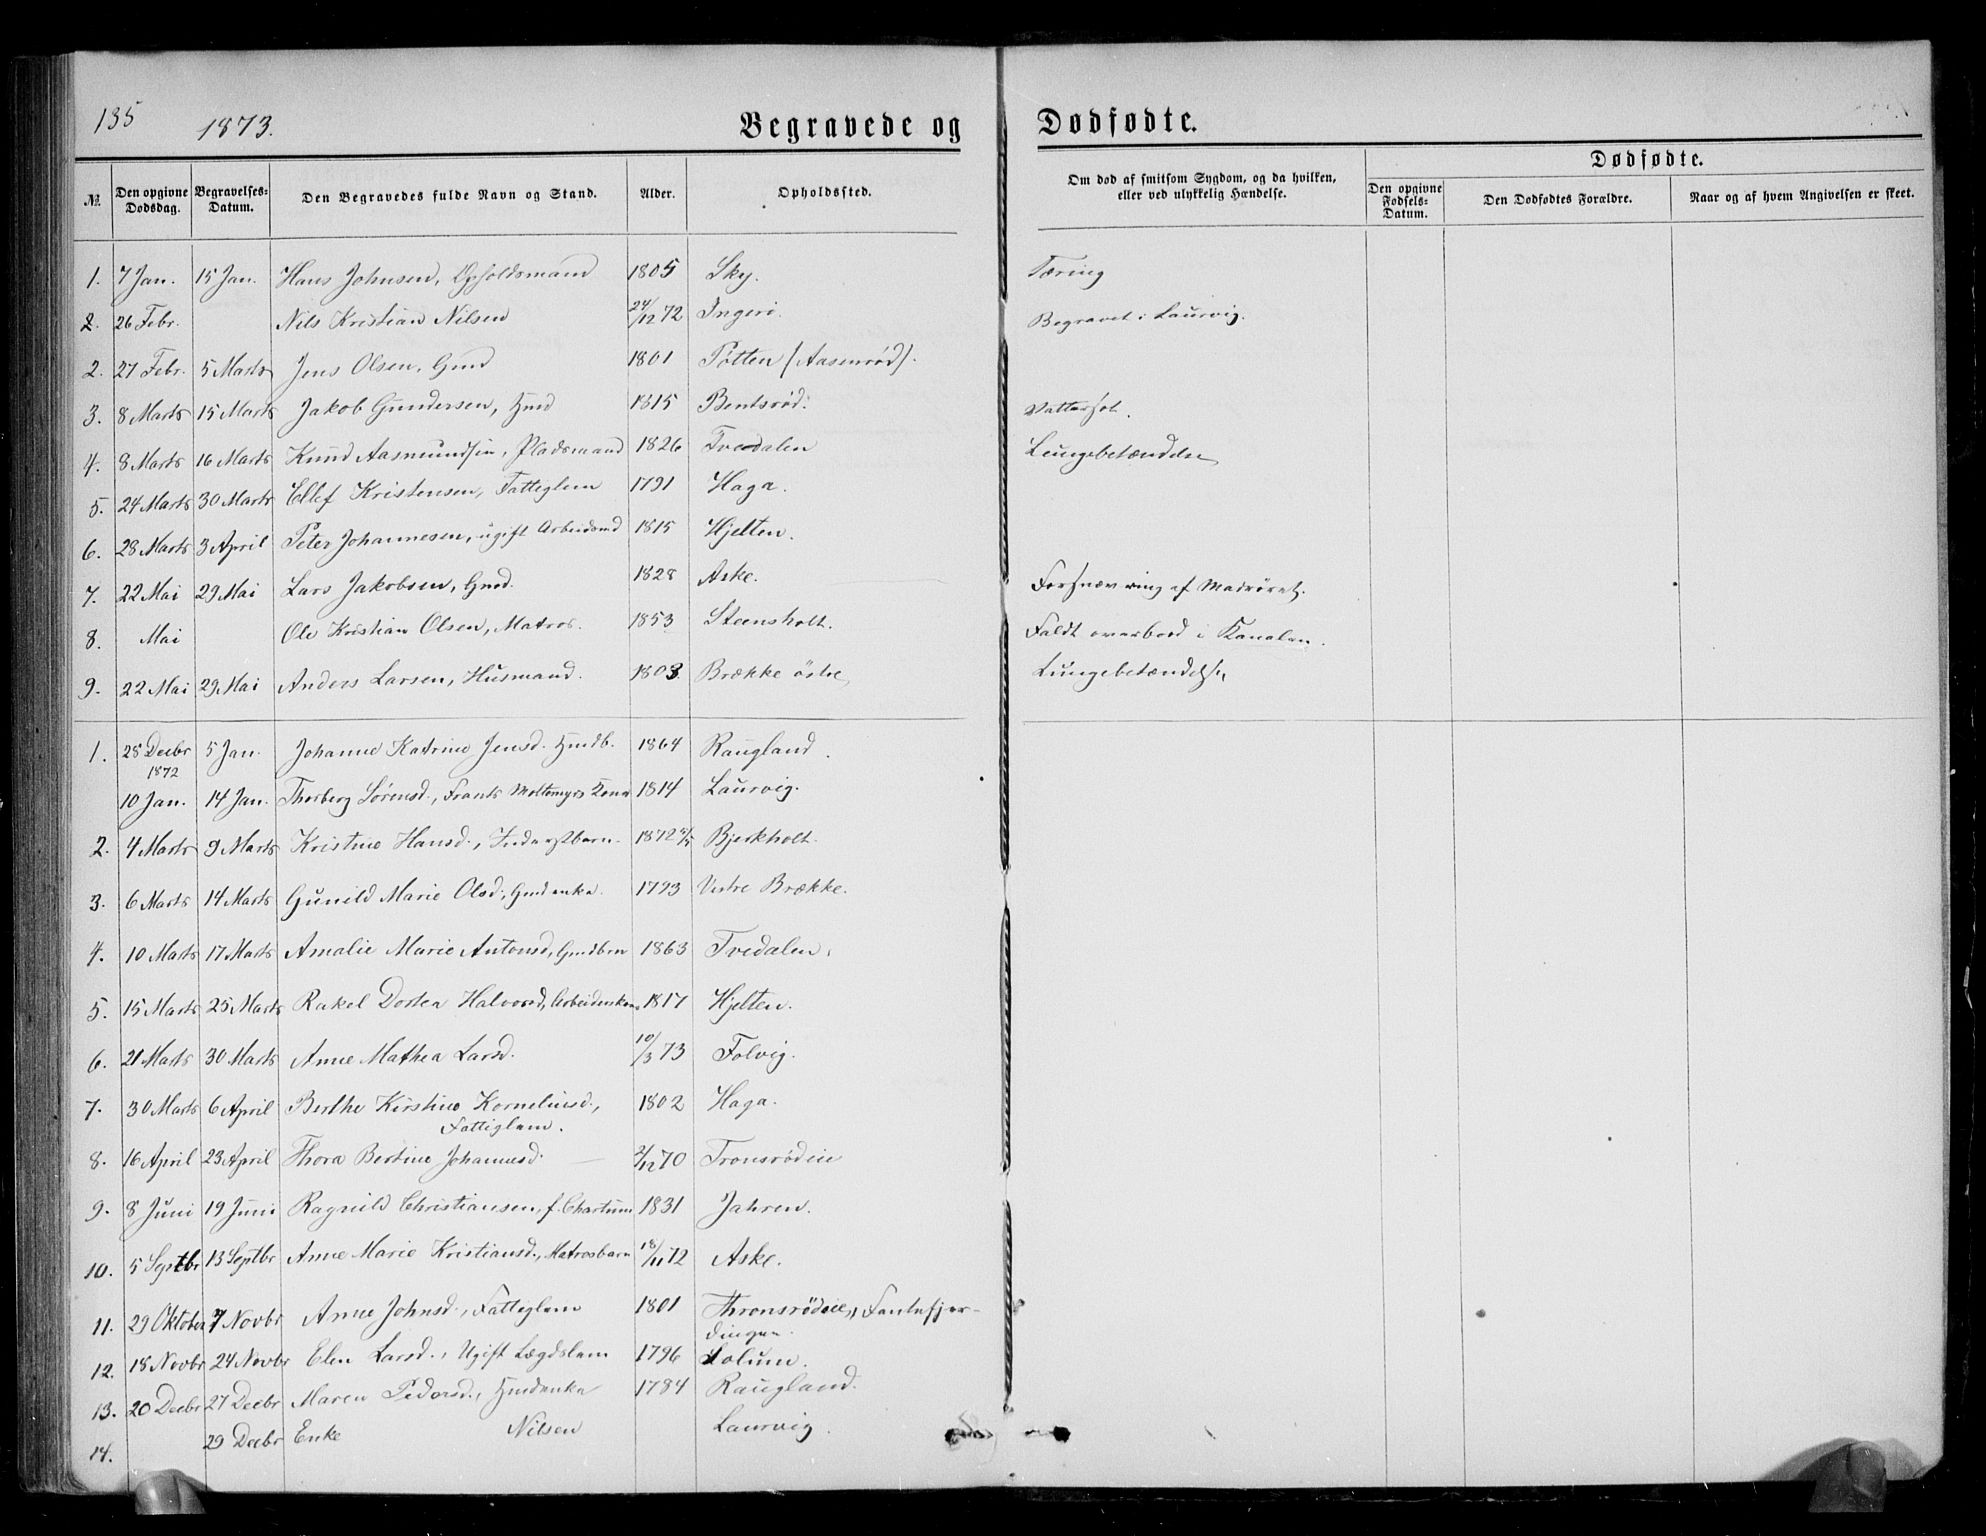 135 1873. Begravede og Dødfødte.
Dødfødte.
№. Den opgivne Dødsdag. Begravelses-Datum. Den Begravedes fulde Navn og Stand. Alder. Opholdssted. Om død af smitsom Sygdom, og da hvilken, eller ved ulykkelig Hændelse. Den opgivne Fødsels-Datum. Den Dødfødtes Forældre. Naar og af hvem Angivelsen er skeet.
1. 7 Jan. 15 Jan. Hans Johnsen, Opholdsmand 1805 Sky. Tæring
2. 26 Febr. Nils Kristian Nilsen 24/12 72 Ingeri. Begravet i Laurvig.
2. 27 Febr. 5 Marts Jens Olsen, Gmd 1801 Potten (Aasenrød).
3. 8 Marts 15 Marts Jakob Gundersen, Gmd 1815 Bentsrød. Vattersot.
4. 8 Marts 16 Marts Knud Aasmundsen, Pladsmand 1826 Tvedalen Lungebetændelse
5. 24 Marts 30 Marts Ellef Kristensen, Fattiglem 1791 Haga.
6. 28 Marts 3 April Peter Johannesen, ugift Arbeidsmd 1815 Hjelten.
7. 22 Mai 29 Mai Lars Jakobsen, Gmd. 1828 Aske. Forsnævring af Madrøret.
8. Mai Ole Kristian Olsen, Matros. 1853 Steensholt. Faldt overbord i Kanalen.
9. 22 Mai 29 Mai Anders Larsen, Husmand. 1803 Brække østre Lungebetændelse
1. 28 Decbr 1872 5 Jan. Johanne Katrine Jensd. Gmdb. 1864 Raugland.
10 Jan. 14 Jan. Thorberg Sørensd., Frants Moltemyrs Kone 1814 Laurvig.
2. 4 Marts 9 Marts Kristine Hansd., Inderstbarn. 1872 Bjerkholt.
3. 6 Marts 14 Marts Gunild Marie Olsd., Gmdenke. 1793 Vestre Brække.
4. 10 Marts 17 Marts Amalie Marie Antonsd, Gmdbrn 1863 Tvedalen.
5. 15 Marts 25 Marts Rakel Dortea Halvorsd, Arbeidersken 1817 Hjelten.
6. 21 Marts 30 Marts Anne Mathea Larsd. 10/3 73 Folvig.
7. 30 Marts 6 April Berthe Kirstine Korneliusd., 1802 Haga.
Fattiglem.
8. 16 April 23 April Thora Bertine Johannesd. 2/12 70 Tronsrødeie
9. 8 Juni 19 Juni Ragnild Christiansen, f. Chartum 1831 Jahren.
10. 5 Septbr 13 Septbr Anne Marie Kristiansd., Matrosbarn 18/11 72 Aske.
11. 29 Oktober 7 Novbr Anne Johnsd., Fattiglem 1801 Thronsrødeie, Fantefjer-
dingen.
12. 18 Novbr 24 Novbr Elen Larsd., Ugift Lægdslem 1796 Solum.
13. 20 Decbr 27 Decbr Maren Pedersd., Gmdenke 1784 Raugland.
14. 29 Decbr Enke Nilsen Laurvig.